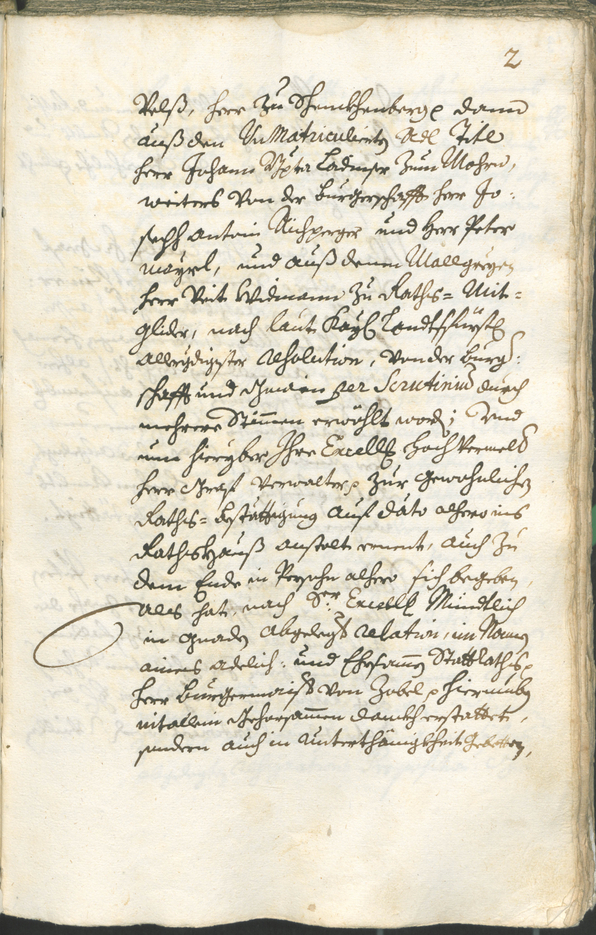 2
Velß, herr zu Schenkhenberg p dann
auß den UnMatriculierten Adl Titl
herr Johann Bpta Ladinser zum Mohren,
weiters von der burgerschafft herr Jo:
seph Antoni Aichperger und herr Peter
Mayrl, und auß denen
herr Veit Widmann zu Raths= Mit=
glider, nach laut Kayl: Landtsfürstl:
allergdigster resolution, von der burger:
schafft und gmain per Scrutinium durch
mehrere Stimmen erwöhlt word; und
nun hieryber Ihre Excell: hoch vermelt
herr Graf Verwalter p zur gewohnlichen
Raths= bestättigung auf dato alhero ins
Rathshauß anstalt ernent, auch zu
dem Ende in Persohn alhero sich begeben,
Als hat, nach Sr: Excell: Mündtlich
in gnaden abgelegt relation, im Namen
aines adelich: und Ehrsammen StattRaths p
herr burgermaister von Zobel p hierumben
nit allein gehorsammen danckh erstattet,
sondern auch in unterthänigkheit gebetten,